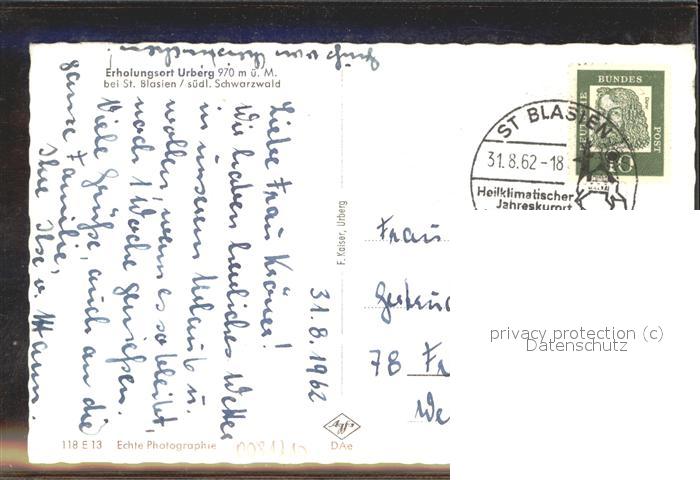 Erholungsort Urberg 970 m ü. M.
bei St. Blasien / südl. Schwarzwald
31.8.1962
Liebe Frau Krömer!
Wir haben herrliches Wetter
in unserem Urlaub u.
wollen, wenn es so bleibt,
noch 1 Woche genießen.
Viele Grüße, auch an die
ganze Familie,
Ihre Ilse u. Mann.
118 E 13 Echte Photographie
F. Kaiser, Urberg
Agfa
DAe
DEUTSCHE
BUNDES
POST
Dürer
10
ST BLASIEN
31.8.62-18
Heilklimatischer
Jahreskurort
Frau
78 Fr
privacy protection (c)
Datenschutz